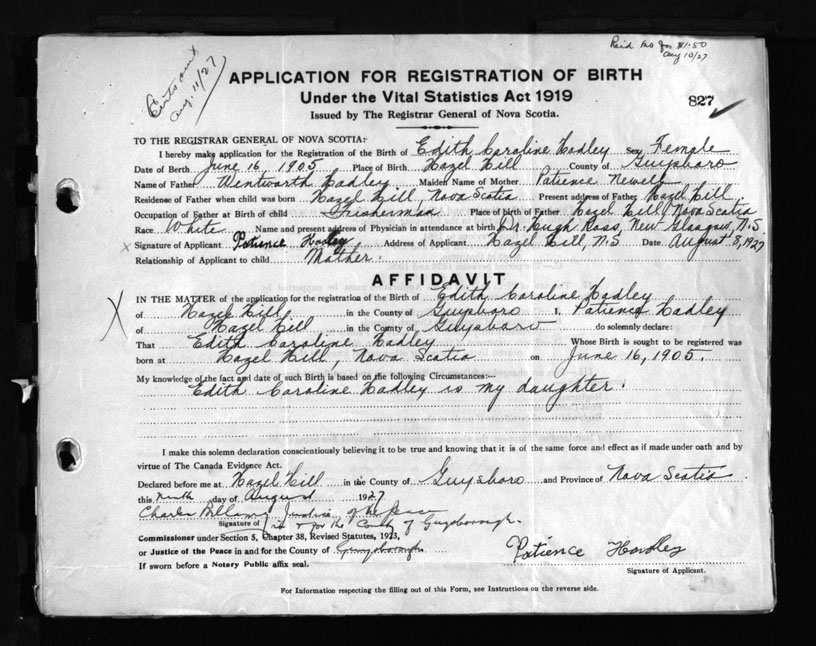 Paid Mo for $1.50
Aug 10/27
Aug. 11/27
APPLICATION FOR REGISTRATION OF BIRTH
Under the Vital Statistics Act 1919
827
Issued by The Registrar General of Nova Scotia.
TO THE REGISTRAR GENERAL OF NOVA SCOTIA:
I hereby make application for the Registration of the Birth of Edith Caroline Hadley Sex Female
Date of Birth June 16, 1905 Place of Birth Hazel Hill County of Guysboro
Name of Father Wentworth Hadley Maiden Name of Mother Patience Newell
Residence of Father when child was born Hazel Hill, Nova Scotia Present address of Father Hazel Hill
Occupation of Father at Birth of child Fisherman Place of birth of Father Hazel Hill, Nova Scotia
Race White Name and present address of Physician in attendance at birth Dr. Hugh Ross, New Glasgow, N.S.
x Signature of Applicant Patience Hadley Address of Applicant Hazel Hill, N.S Date August 8, 1927
Relationship of Applicant to child Mother.
AFFIDAVIT
X IN THE MATTER of the application for the registration of the Birth of Edith Caroline Hadley
of Hazel Hill in the County of Guysboro I, Patience Hadley
of Hazel Hill in the County of Guysboro do solemnly declare:
That Edith Caroline Hadley Whose Birth is sought to be registered was
born at Hazel Hill, Nova Scotia on June 16, 1905.
My knowledge of the fact and date of such Birth is based on the following Circumstances:—
Edith Caroline Hadley is my daughter.
I make this solemn declaration conscientiously believing it to be true and knowing that it is of the same force and effect as if made under oath and by
virtue of The Canada Evidence Act.
Declared before me at Hazel Hill in the County of Guysboro and Province of Nova Scotia
this ninth day of August 1927
Charles Justice of the Peace
Signature of in & for the County of Guysborough.
Commissioner under Section 5, Chapter 38, Revised Statutes, 1923,
or Justice of the Peace in and for the County of Guysborough
Patience Hadley
If sworn before a Notary Public affix seal.
Signature of Applicant.
For Information respecting the filling out of this Form, see Instructions on the reverse side.